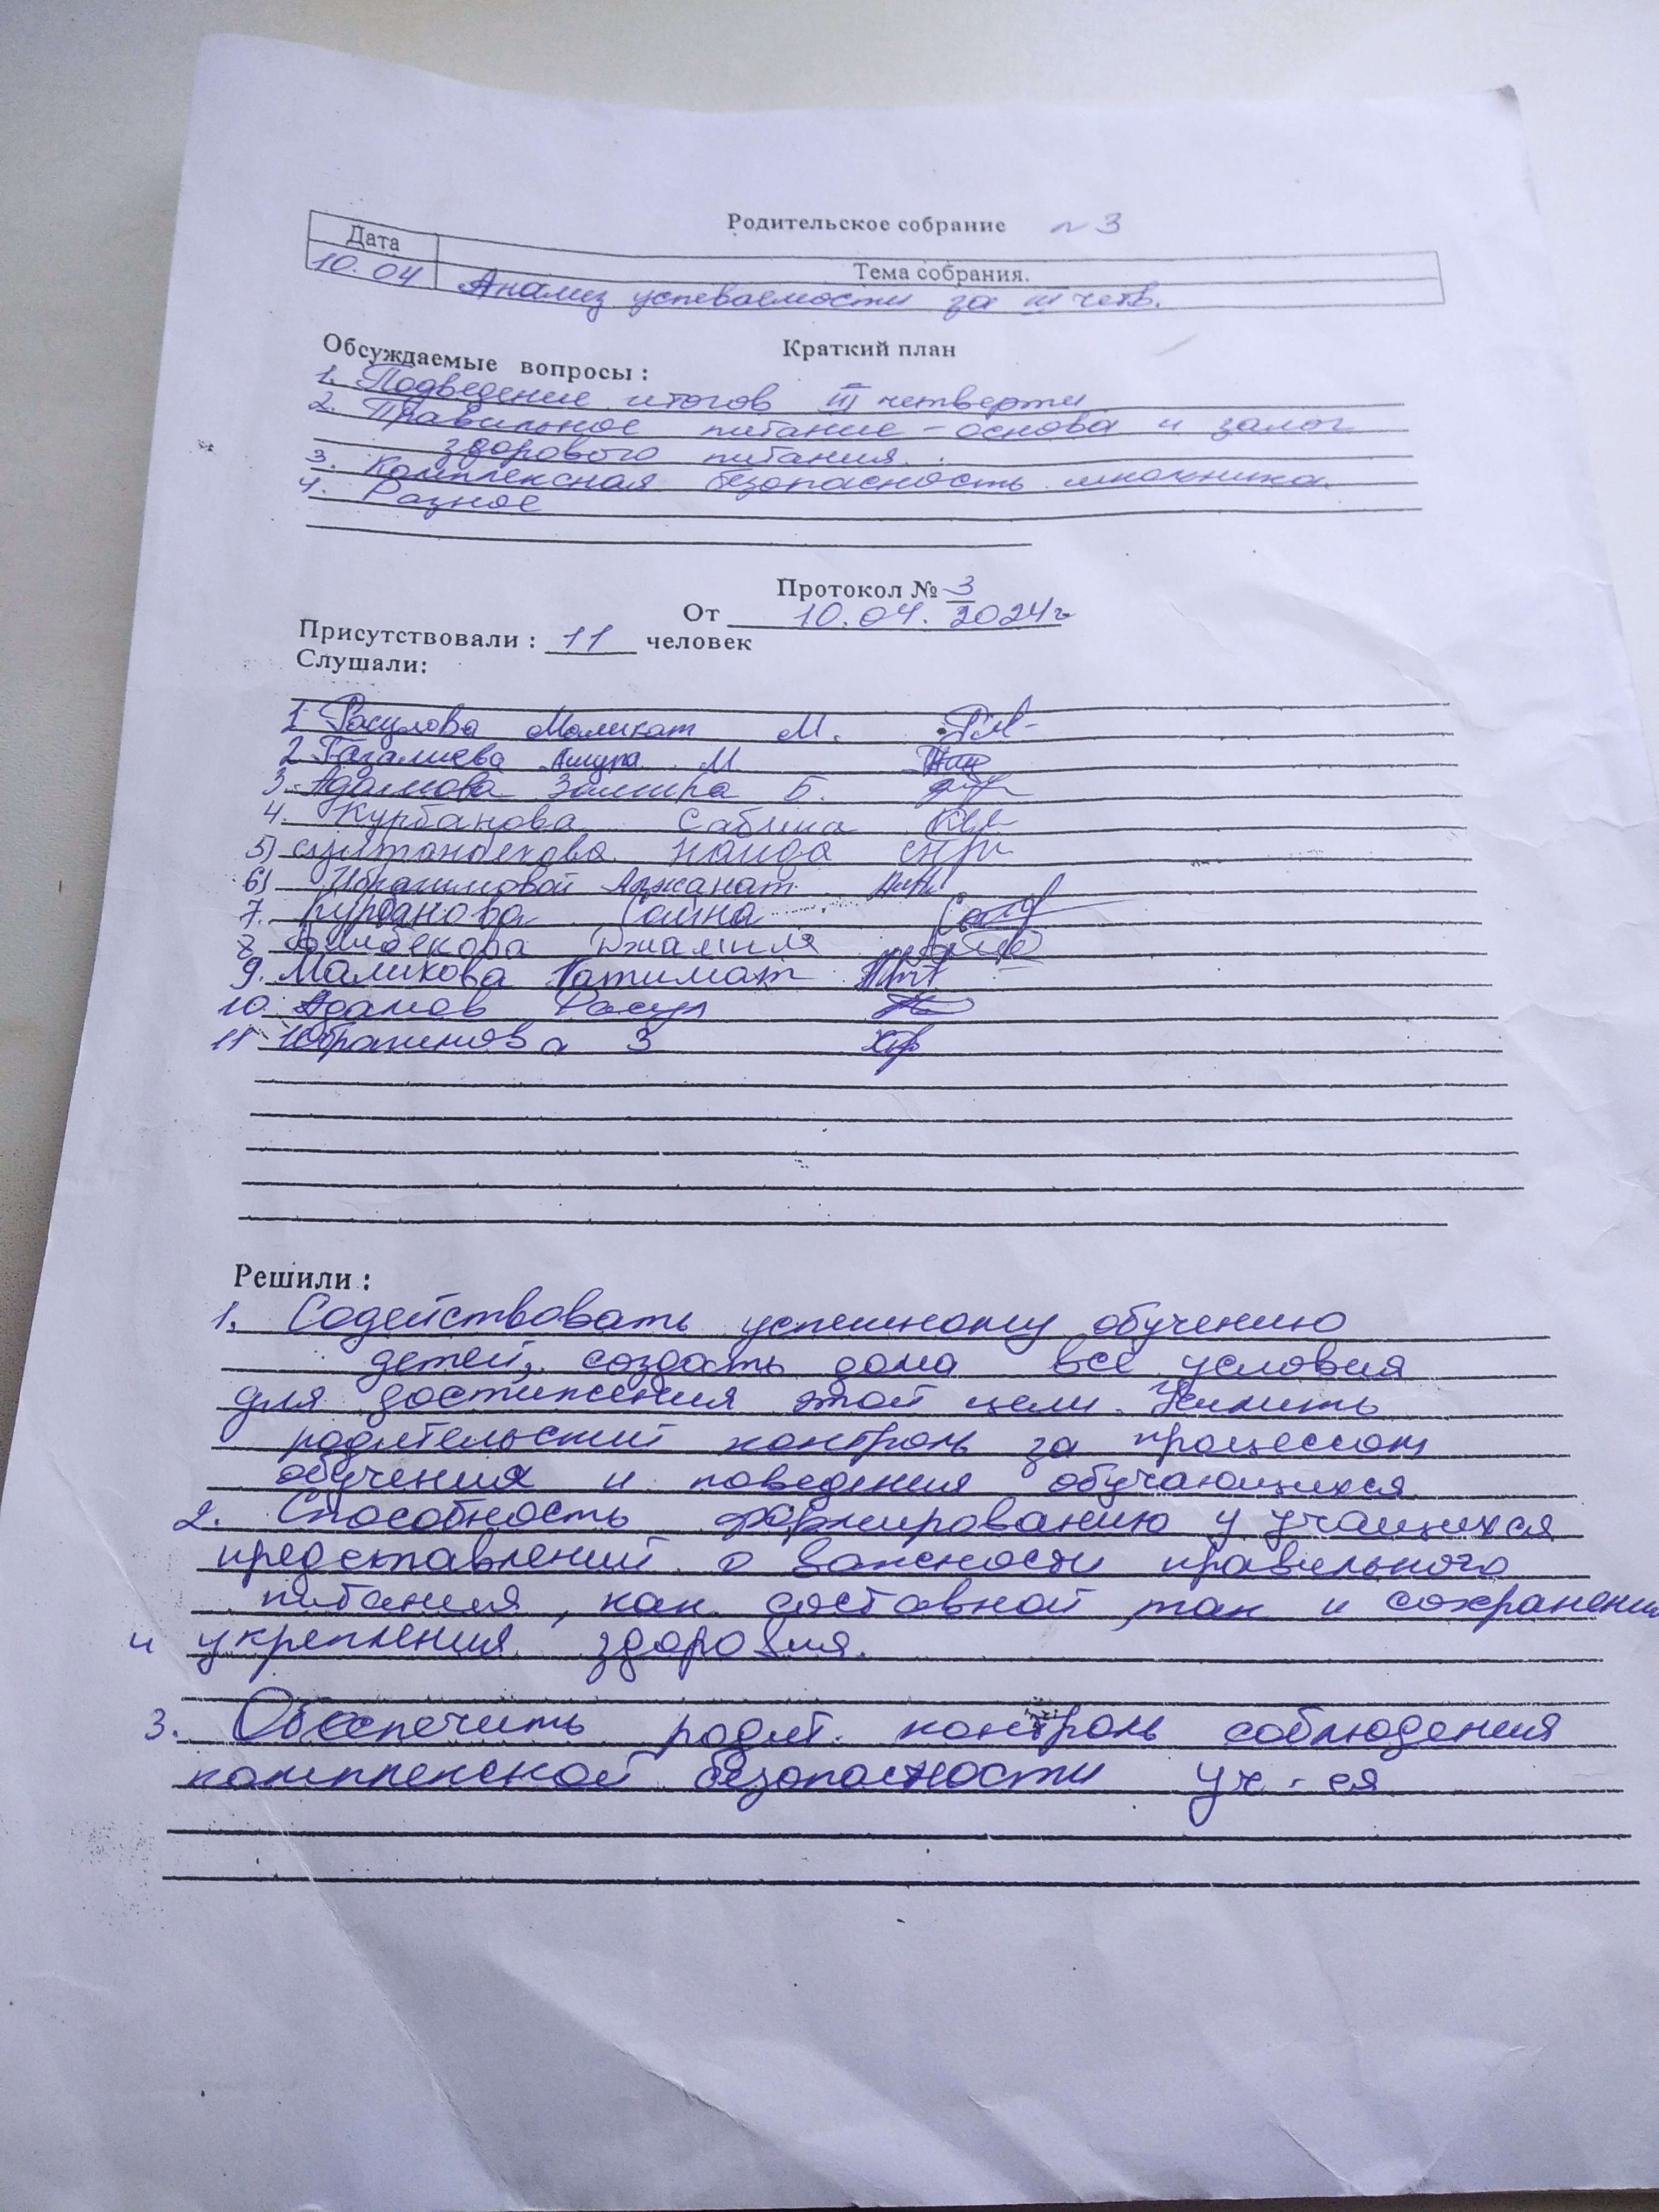 Родительское собрание № 3
Дата
Тема собрания.
10.04 Анализ успеваемости за III четв.
Краткий план
Обсуждаемые вопросы :
1. Подведение итогов III четверти
2. Правильное питание – основа и залог
здорового питания.
3. Комплексная безопасность школьника.
4. Разное
Протокол № 3
От 10.04.2024г
Присутствовали : 11 человек
Слушали:
1 Расулова Маликат М.
2 Газалиева Ашура М
3. Адамова Замира Б.
4. Курбанова Сабина
5) Султанбекова Наида
6) Ибрагимовой Аджанат
7. Курбанова Саина
8 Алибекова Джамиля
9. Маликова Патимат
10. Адамов Расул
11 Ибрагимова З
Решили :
1. Содействовать успешному обучению
детей, создать дома все условия
для достижения этой цели. Усилить
родительский контроль за процессом
обучения и поведения обучающихся
2. Способность формированию у учащихся
представлений о важности правильного
питания, как составной так и сохранения
и укрепления здоровия.
3. Обеспечить родит. контроль соблюдения
комплексной безопасности уч-ся